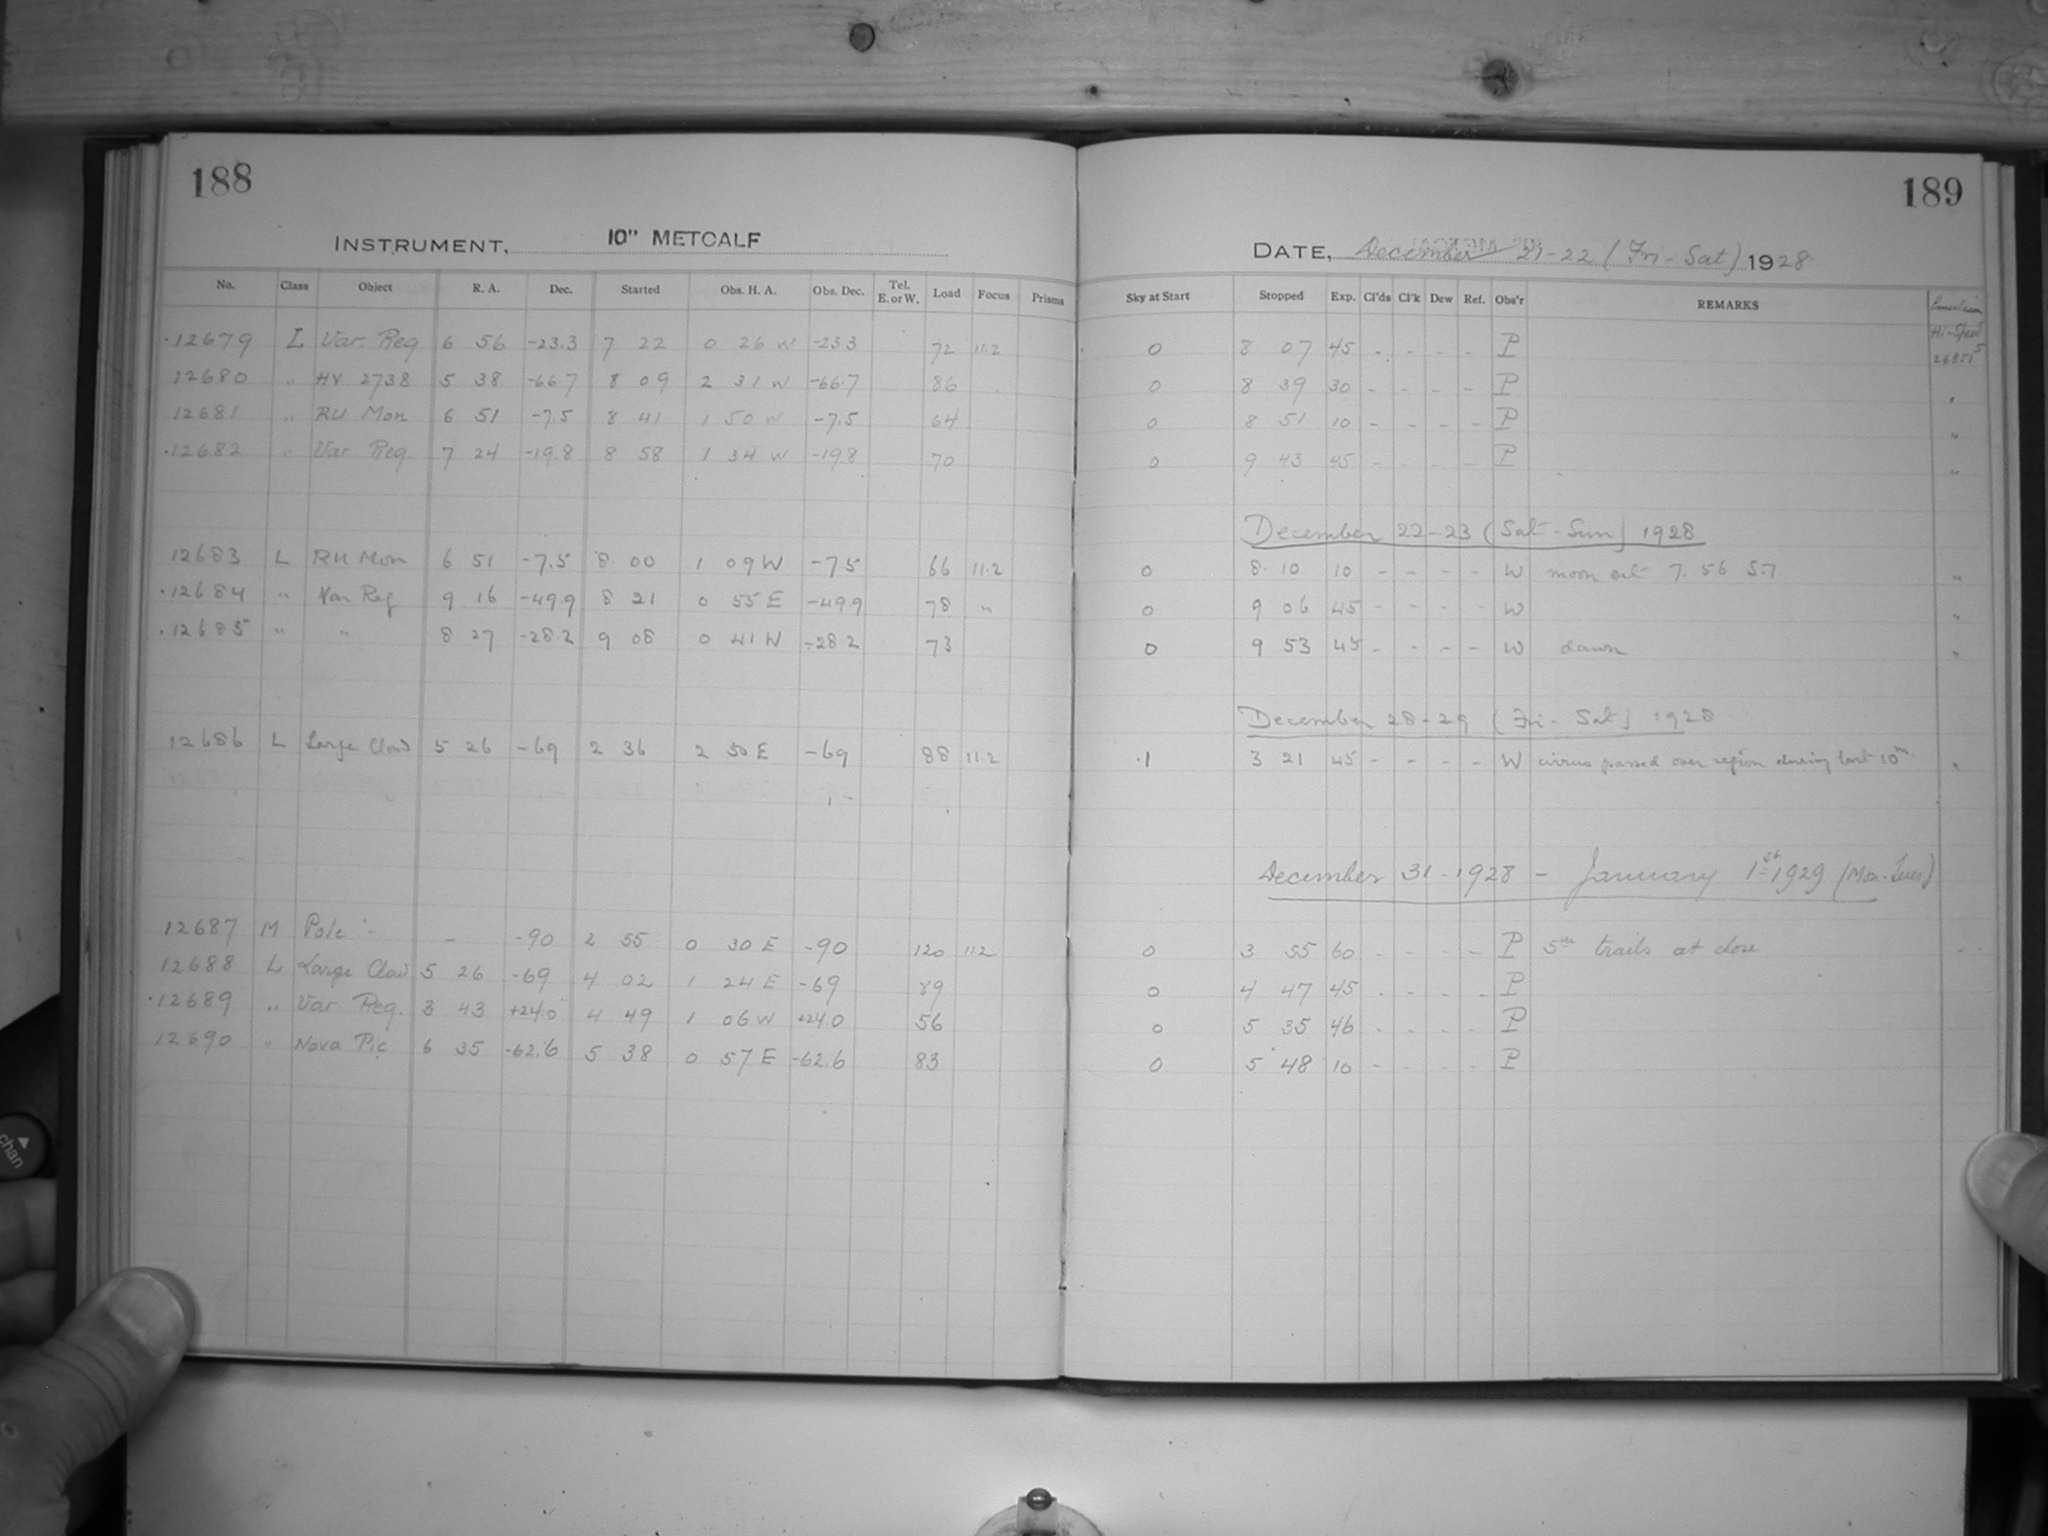 188
INSTRUMENT, 10" METCALF
No. Class Object R. A. Dec. Started Obs. H. A. Obs. Dec. Tel. E. or W. Load Focus Prisms
·12679 L Var. Reg 6 56 -23.3 7 22 0 26 W -23.3 72 11.2
12680 " HV 2738 5 38 -66.7 8 09 2 31 W -66.7 86
12681 " RU Mon 6 51 -7.5 8 41 1 50 W -7.5 64
·12682 " Var. Reg. 7 24 -19.8 8 58 1 34 W -19.8 70
12683 L RU Mon 6 51 -7.5 8 00 1 09 W -7.5 66 11.2
·12684 " Var Reg 9 16 -49.9 8 21 0 55 E -49.9 78 "
·12685 " " 8 27 -28.2 9 08 0 41 W -28.2 73
12686 L Large Cloud 5 26 -69 2 36 2 50 E -69 88 11.2
12687 M Pole - -90 2 55 0 30 E -90 120 11.2
12688 L Large Cloud 5 26 -69 4 02 1 24 E -69 89
·12689 " Var Reg. 3 43 +24.0 4 49 1 06 W +24.0 56
12690 " Nova Pic 6 35 -62.6 5 38 0 57 E -62.6 83
189
DATE, December 21-22 (Fri-Sat) 1928
Sky at Start Stopped Exp. Cl'ds Cl'k Dew Ref. Obs'r REMARKS
Hi-Speed
0 8 07 45 - - - - P
0 8 39 30 - - - - P
0 8 51 10 - - - - P "
0 9 43 45 - - - - P "
December 22-23 (Sat-Sun) 1928
0 8 10 10 - - - - W moon set 7.56 "
0 9 06 45 - - - - W "
0 9 53 45 - - - - W dawn "
December 28-29 (Fri-Sat) 1928
.1 3 21 45 - - - - W cirrus passed over region during last 10m. "
December 31 1928 - January 1st 1929 (Mon-Tues)
0 3 55 60 - - - - P trails at close
0 4 47 45 - - - - P
0 5 35 46 - - - - P
0 5 48 10 - - - - P
chan